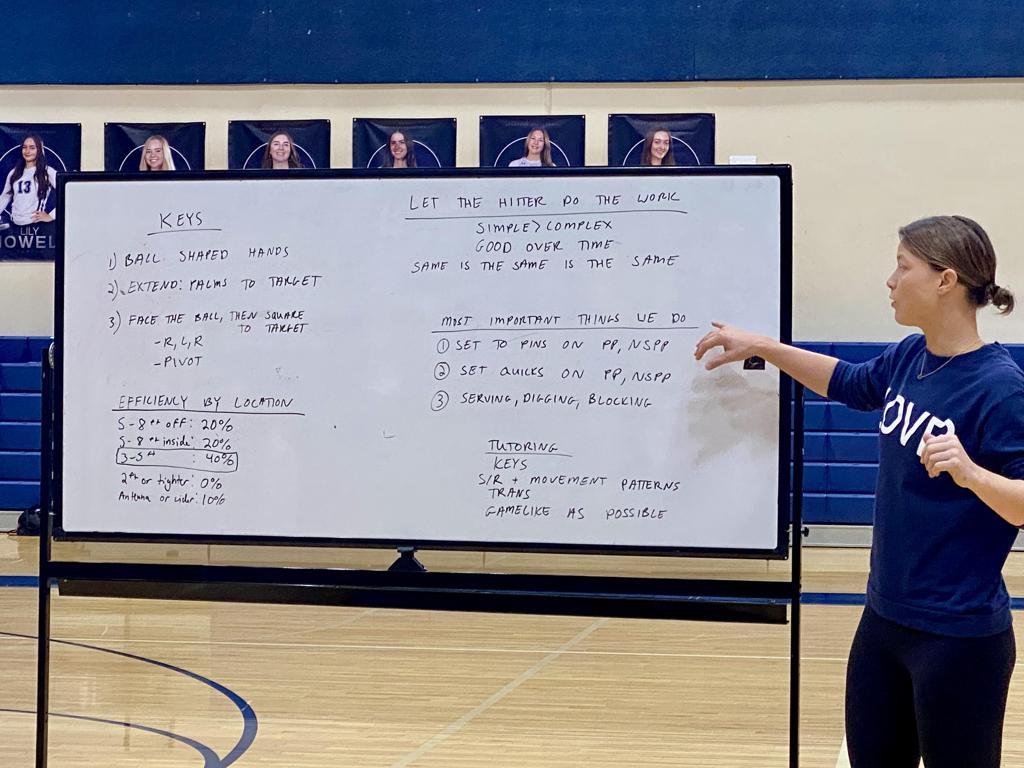 13
LILY
KEYS
1) BALL SHAPED HANDS
2) EXTEND: PALMS TO TARGET
3) FACE THE BALL, THEN SQUARE
TO TARGET
- R, L, R
- PIVOT
EFFICIENCY BY LOCATION
5-8ft off: 20%
5-8ft inside: 20%
3-5ft : 40%
2ft or tighter: 0%
Antenna or wider: 10%
LET THE HITTER DO THE WORK
SIMPLE > COMPLEX
GOOD OVER TIME
SAME IS THE SAME IS THE SAME
MOST IMPORTANT THINGS WE DO
① SET TO PINS ON PP, NSPP
② SET QUICKS ON PP, NSPP
③ SERVING, DIGGING, BLOCKING
TUTORING
KEYS
S/R + MOVEMENT PATTERNS
TRANS
GAMELIKE AS POSSIBLE